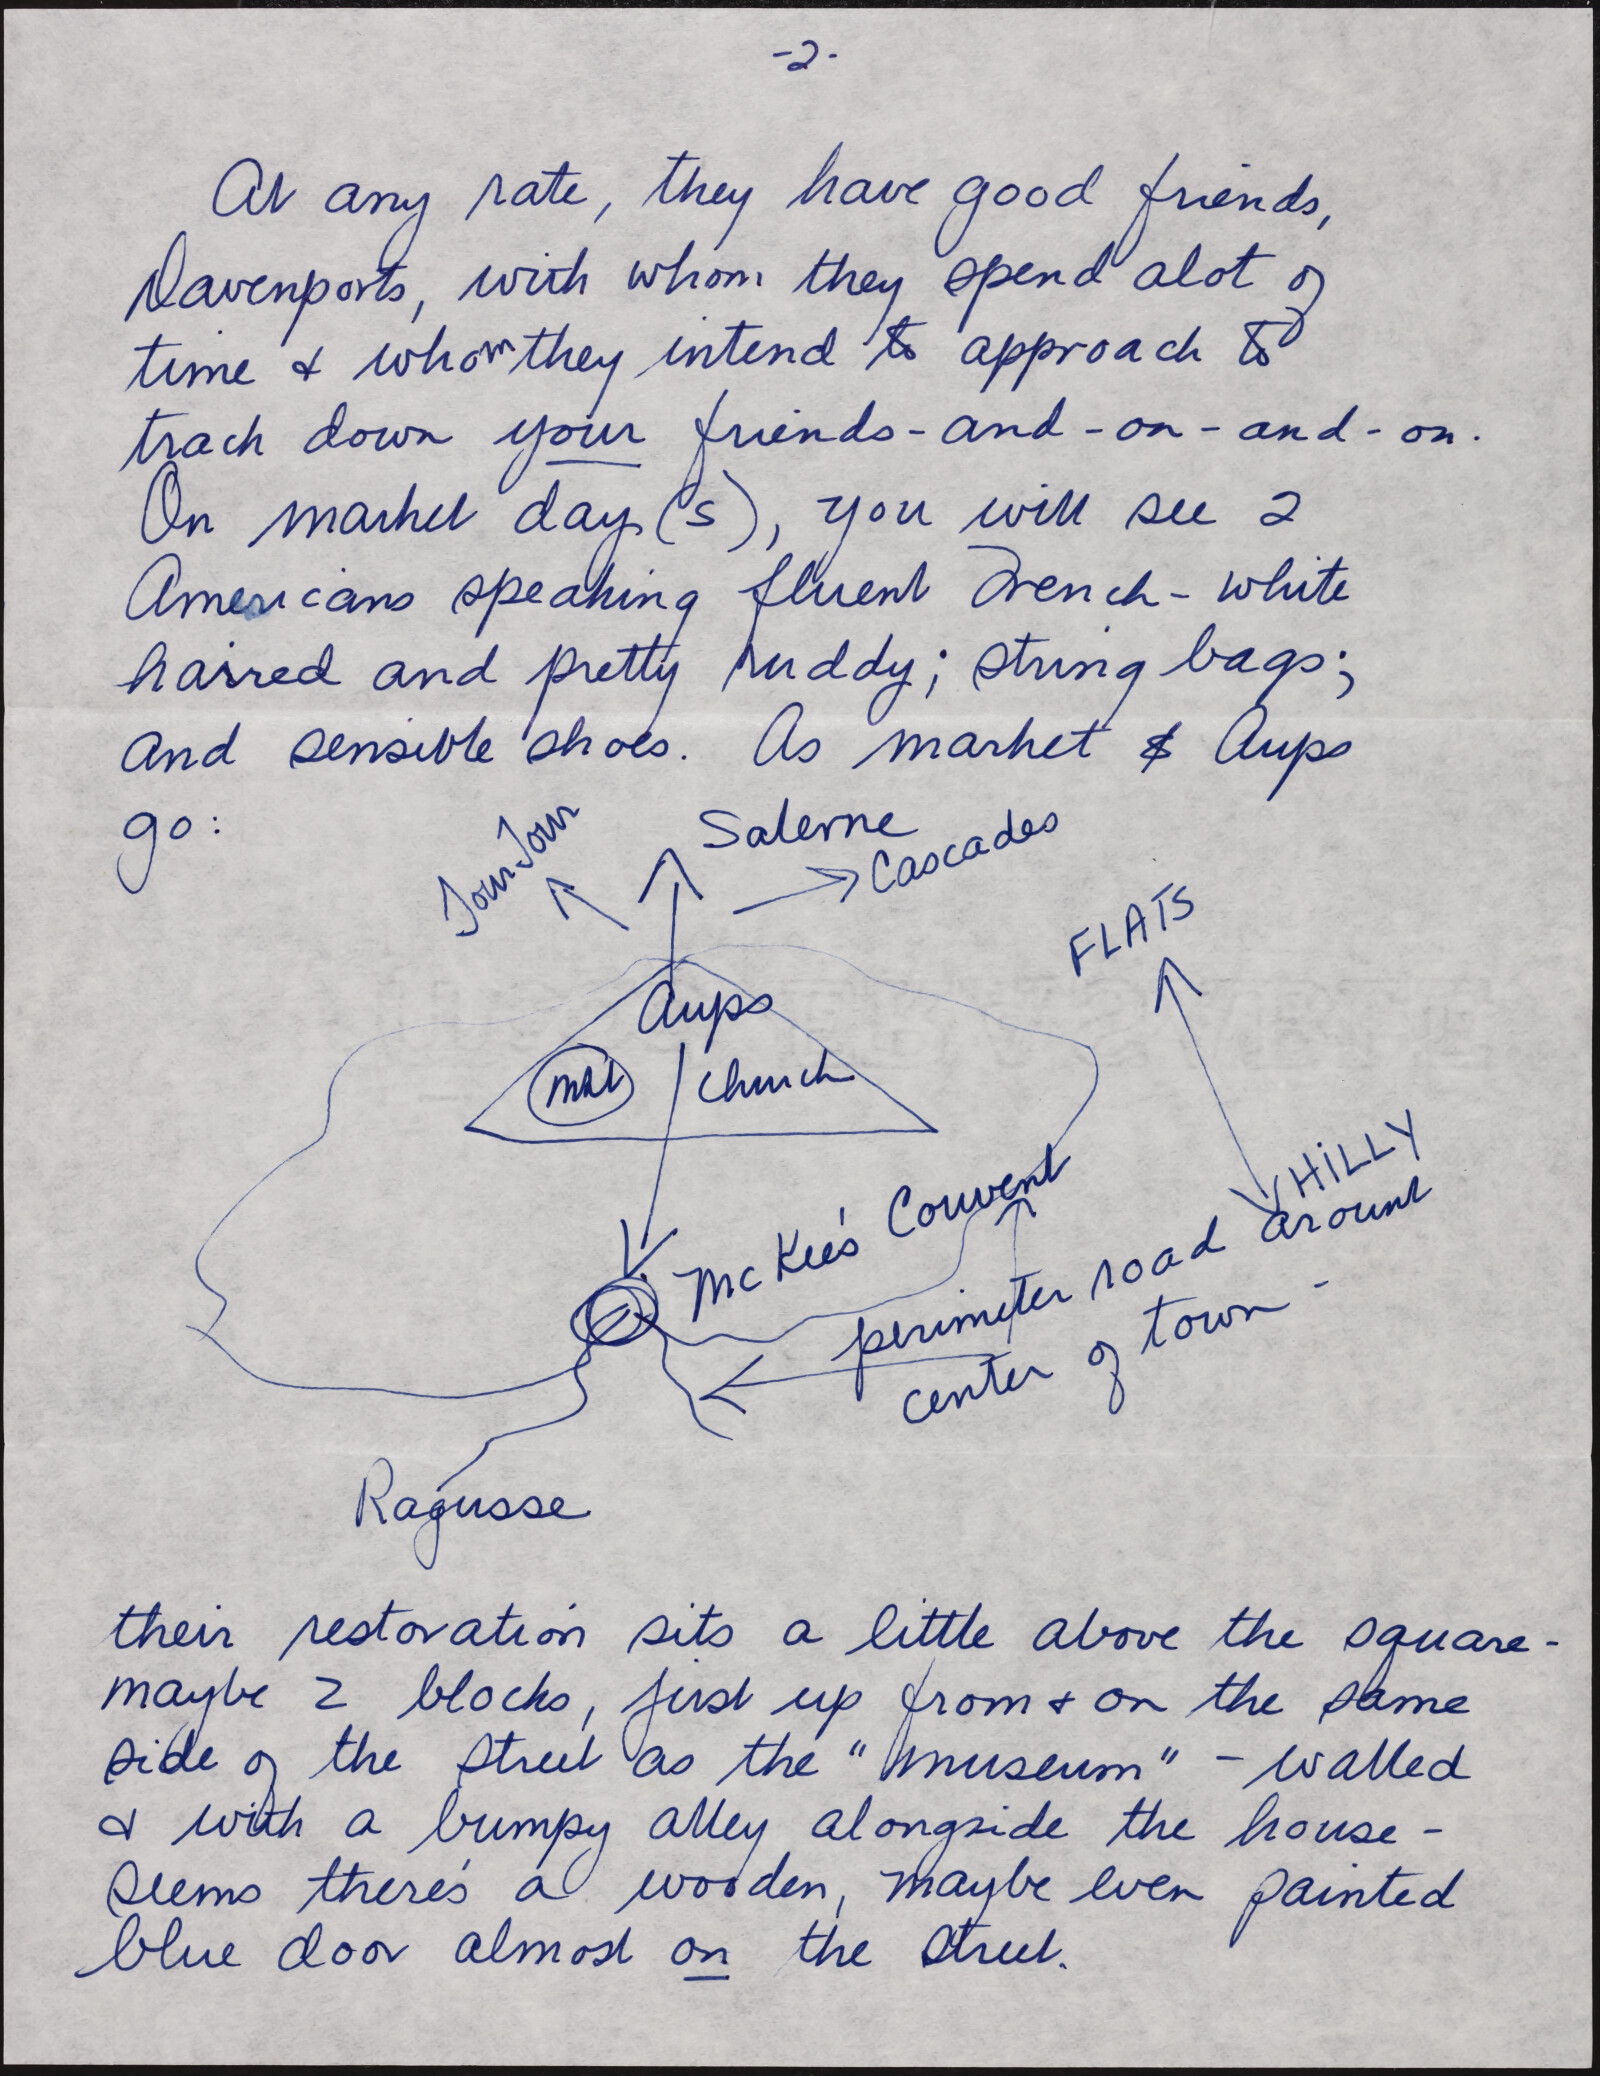 -2-
At any rate, they have good friends,
Davenports, with whom they spend alot of
time & whom they intend to approach to
track down your friends-and-on-and-on.
On market day(s), you will see 2
Americans speaking fluent French - white
haired and pretty ruddy; string bags;
and sensible shoes. As market & Aups
go:
TourTour
Salerne
Cascades
FLATS
Aups
mkt
Church
HiLLY
McKee's Couvent
perimeter road around
center of town -
Ragusse
their restoration sits a little above the square -
maybe 2 blocks, just up from & on the same
side of the street as the "museum" - walled
& with a bumpy alley alongside the house -
seems there's a wooden, maybe even painted
blue door almost on the street.